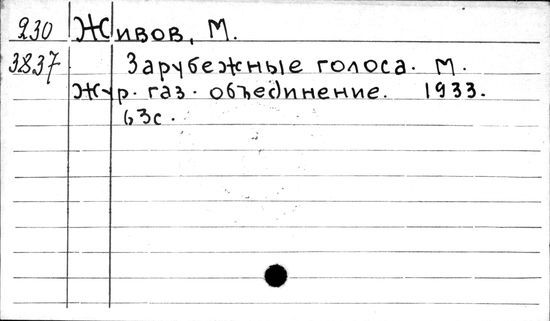 230 Живов, М.
3837 Зарубежные голоса. М.
Жур. газ. объединение. 1933.
63с.